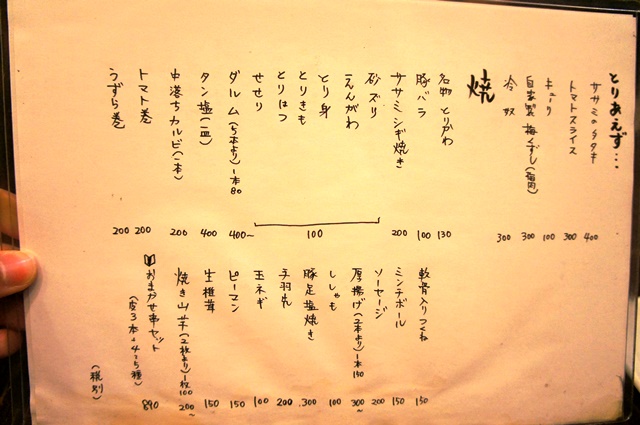 とりあえず…
ササミのタタキ 400
トマトスライス 300
キューリ 100
自家製 梅くずし(梅肉) 300
冷奴 300
焼
名物 とりかわ 130
豚バラ 100
ササミ シギ焼き 200
砂ズリ
えんがわ
とり身
とりきも
とりはつ
せせり
100
ダルム(5本より)一本80 400~
タン塩(一皿) 400
中落ちカルビ(一本) 200
トマト巻 200
うずら巻 200
軟骨入りつくね 150
ミンチボール 150
ソーセージ 200
厚揚げ(2本より)一本150 300~
ししゃも 100
豚足塩焼き 300
手羽先 200
玉ネギ 100
ピーマン 150
生椎茸 150
焼き山芋(2枚より)一枚100 200~
おまかせ串セット 890
(皮3本+4~5種)
(税別)